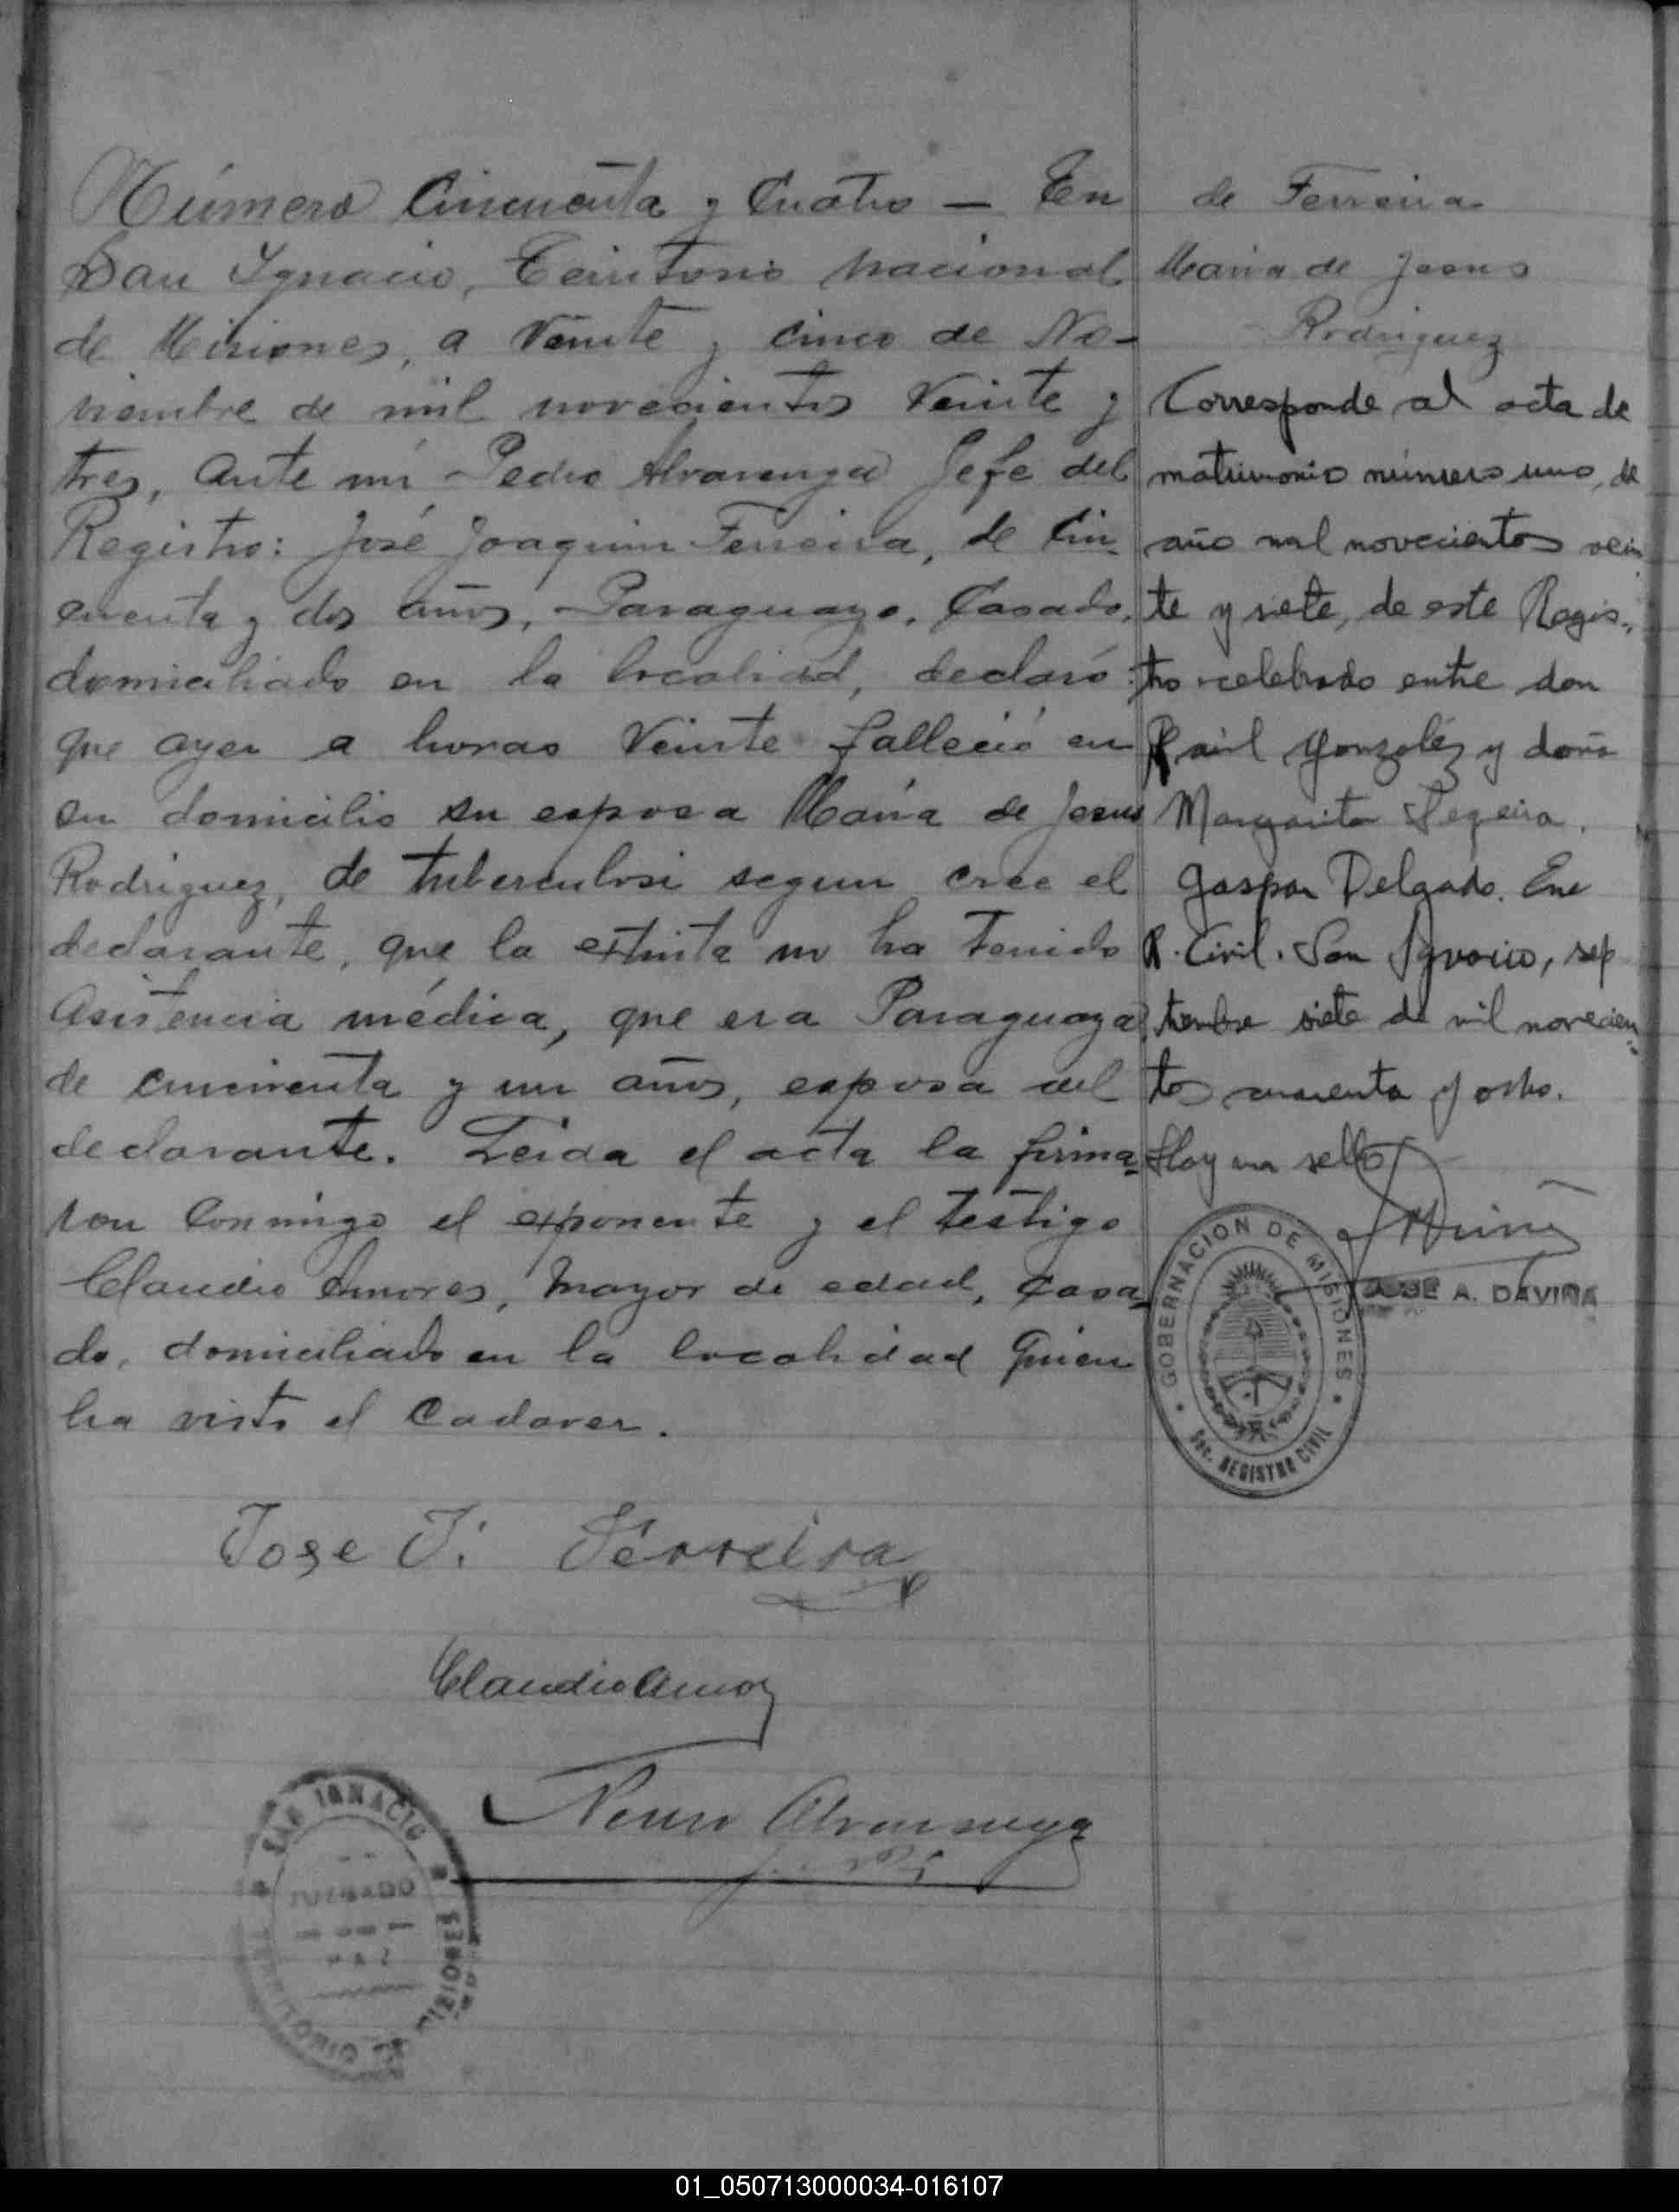 Número Cincuenta y Cuatro — En
San Ygnacio, Territorio nacional
de Misiones, a Veinte y cinco de No-
viembre de mil novecientos Veinte y
tres, ante mi Pedro Alvarenga Jefe del
Registro: José Joaquin Ferreira, de Cin-
cuenta y dos años, Paraguayo, Casado,
domiciliado en la localidad, declaró:
que ayer a horas Veinte falleció en
su domicilio su esposa Maria de Jesus
Rodriguez, de tuberculosi segun cree el
declarante, que la extinta no ha tenido
asistencia médica, que era Paraguaya
de cincuenta y un años, esposa del
declarante. Leida el acta la firma-
ron conmigo el exponente y el testigo
Claudio Amores, mayor de edad, casa-
do, domiciliado en la localidad quien
ha visto el cadaver.
Jose J. Ferreira
Claudio Amor
Alvarenga
SAN IGNACIO
JUZGADO
PAZ
TERRITORIO DE MISIONES
de Ferreira
Maria de Jesus
Rodriguez
Corresponde al acta de
matrimonio número uno, de
año mil novecientos vein
te y siete, de este Regis-
tro celebrado entre don
Raúl González y doña
Margarita
Gaspar Delgado. Enc
R. Civil. San Ignacio, sep
tiembre siete de mil novecien-
tos cuarenta y ocho.
Hay un sello
GOBERNACION DE MISIONES
Sec. REGISTRO CIVIL
JOSE A. DAVIÑA
01_050713000034-016107